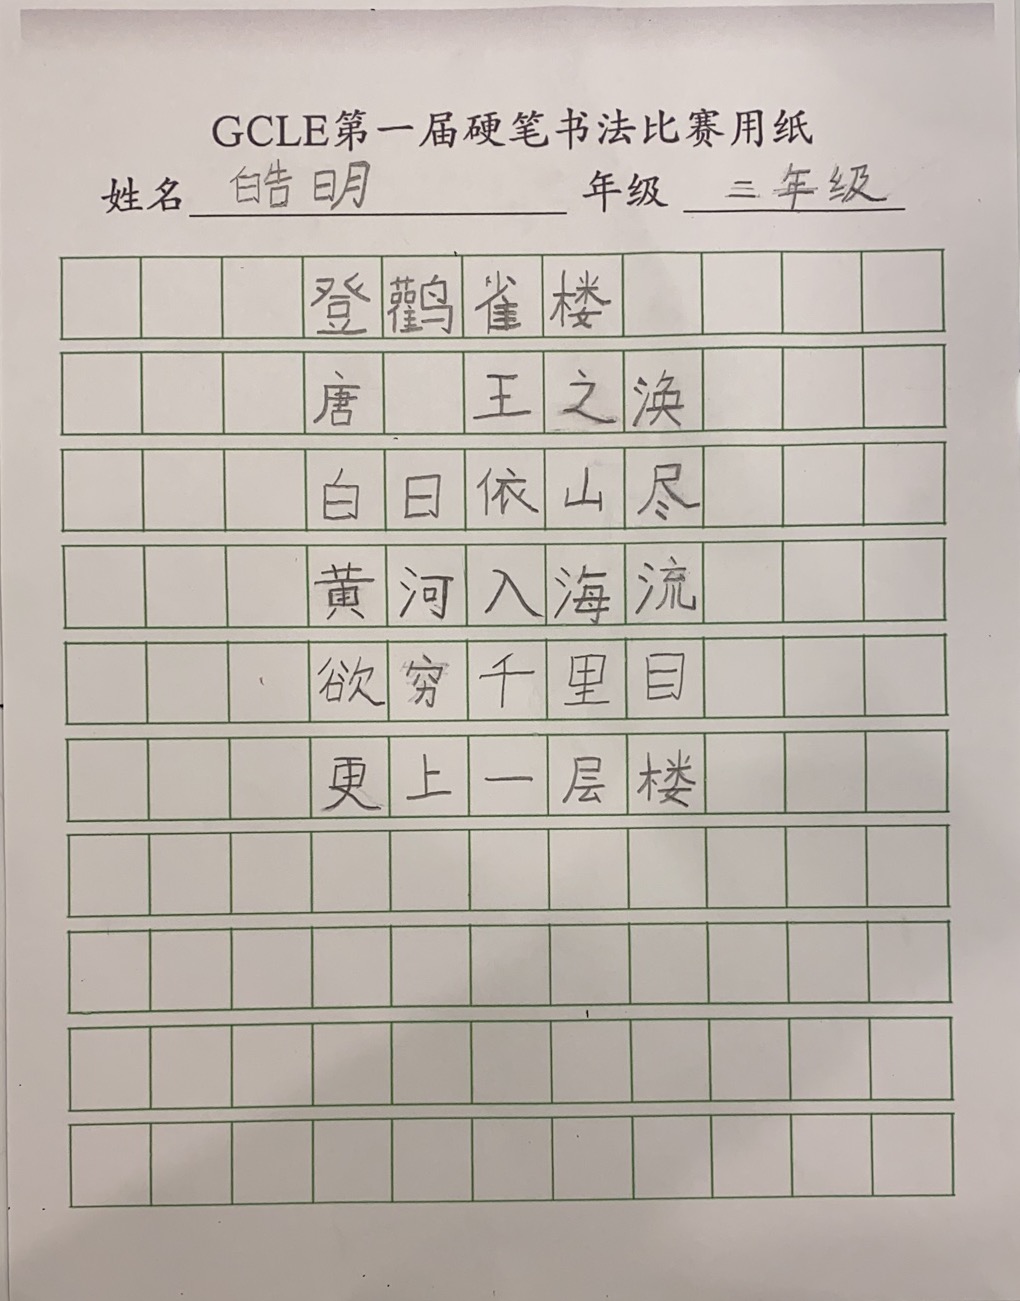 GCLE第一届硬笔书法比赛用纸
姓名 皓明 年级 三年级
登鹳雀楼
唐 王之涣
白日依山尽
黄河入海流
欲穷千里目
更上一层楼